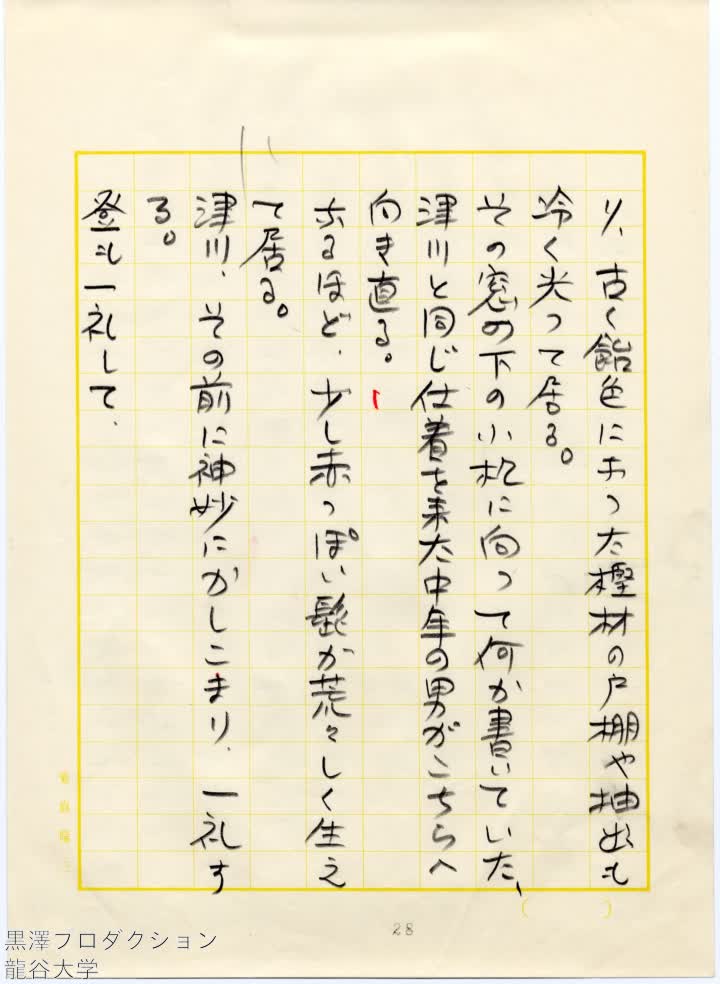 り、古く飴色になった樫材の戸棚や抽出も
冷く光って居る。
その窓の下の小机に向って何か書いていた、
津川と同じ仕着を来た中年の男がこちらへ
向き直る。
なるほど、少し赤っぽい髭が荒々しく生え
て居る。
津川、その前に神妙にかしこまり、一礼す
る。
登も一礼して、
28
黒澤プロダクション
龍谷大学